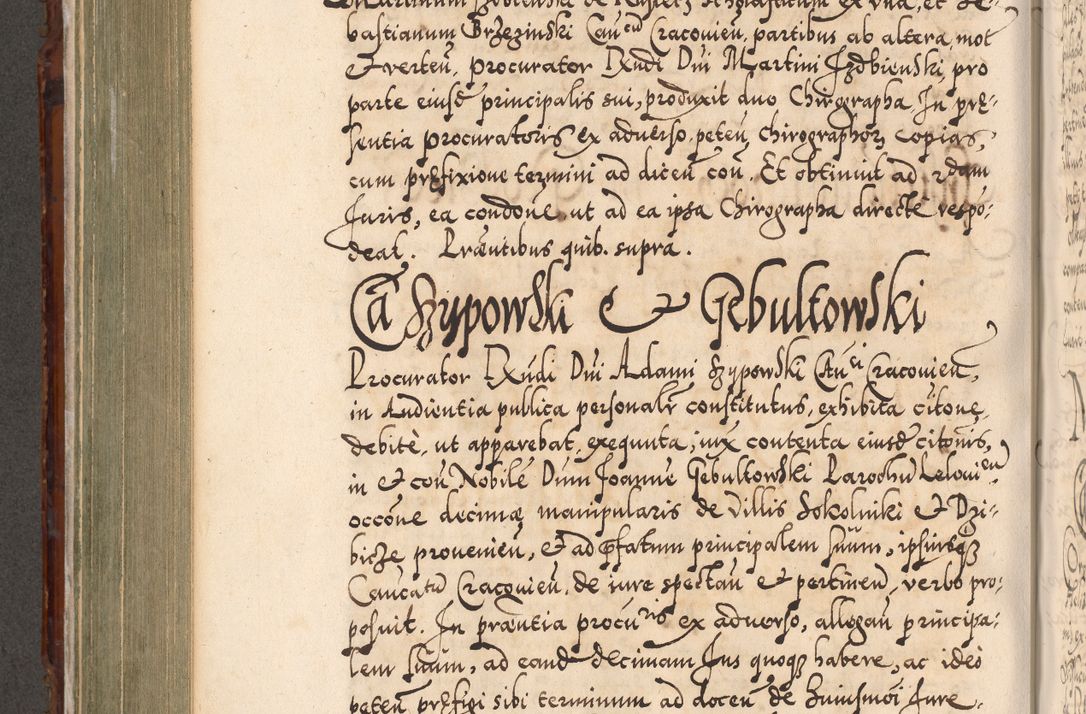 bastianum Brzezinski Can^cu Cracovień, partibus ab altera, mot
& verteń, procurator Rxndi Dni Martini Izdbienski, pro
parte eiusd principalis sui, produxit duo Chirographa, In prę-
sentia procuratoris ex adverso, peteń chirographorz copias,
cum pręfixione termini ad diceń con. Et obtinuit ad 2dam
Iuris, ea condone ut ad ea ipsa Chirographa directe respo-
deat. Präntibus quib. supra.
Cā Szypowski & Gębultowski
Procurator Rxndi Dni Adami Szypowski Can^ci Cracovień,
in Audientia publica personalr constitutus, exhibita citone,
debitè, ut apparebat, exequuta, iux contenta eiusd citonis,
in & con Nobile Dnm Joanne Gębultowski Parochu Lelovien
occone decimę manipularis de villis Sokolniki & Dzi-
bicze provenień, & ad pfatum principalem suum, ipsiusq
Cancatu Cracovień, de iure spectań & pertineń, verbo pro-
posuit. In präntia procu^ris ex adverso, allegań principa-
lem suum, ad eand decimam Ius quoq habere, ac ideo
peteń pręfigi sibi terminum ad doceń de huiusmoi Iure.